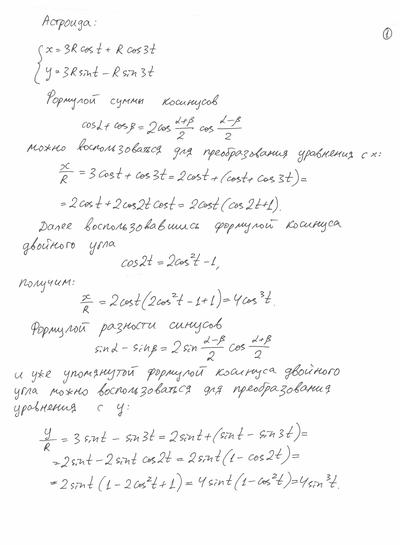 ①
Астроида:
{x = 3R cos t + R cos 3t
y = 3R sin t − R sin 3t
Формулой суммы косинусов
cos α + cos β = 2 cos (α+β)/2 cos (α−β)/2
можно воспользоваться для преобразования уравнения с x:
x/R = 3 cos t + cos 3t = 2 cos t + (cos t + cos 3t) =
= 2 cos t + 2 cos 2t cos t = 2 cos t (cos 2t + 1).
Далее воспользовавшись формулой косинуса
двойного угла
cos 2t = 2 cos² t − 1,
получим:
x/R = 2 cos t (2 cos² t − 1 + 1) = 4 cos³ t.
Формулой разности синусов
sin α − sin β = 2 sin (α−β)/2 cos (α+β)/2
и уже упомянутой формулой косинуса двойного
угла можно воспользоваться для преобразования
уравнения с y:
y/R = 3 sin t − sin 3t = 2 sin t + (sin t − sin 3t) =
= 2 sin t − 2 sin t cos 2t = 2 sin t (1 − cos 2t) =
= 2 sin t (1 − 2 cos² t + 1) = 4 sin t (1 − cos² t) = 4 sin³ t.